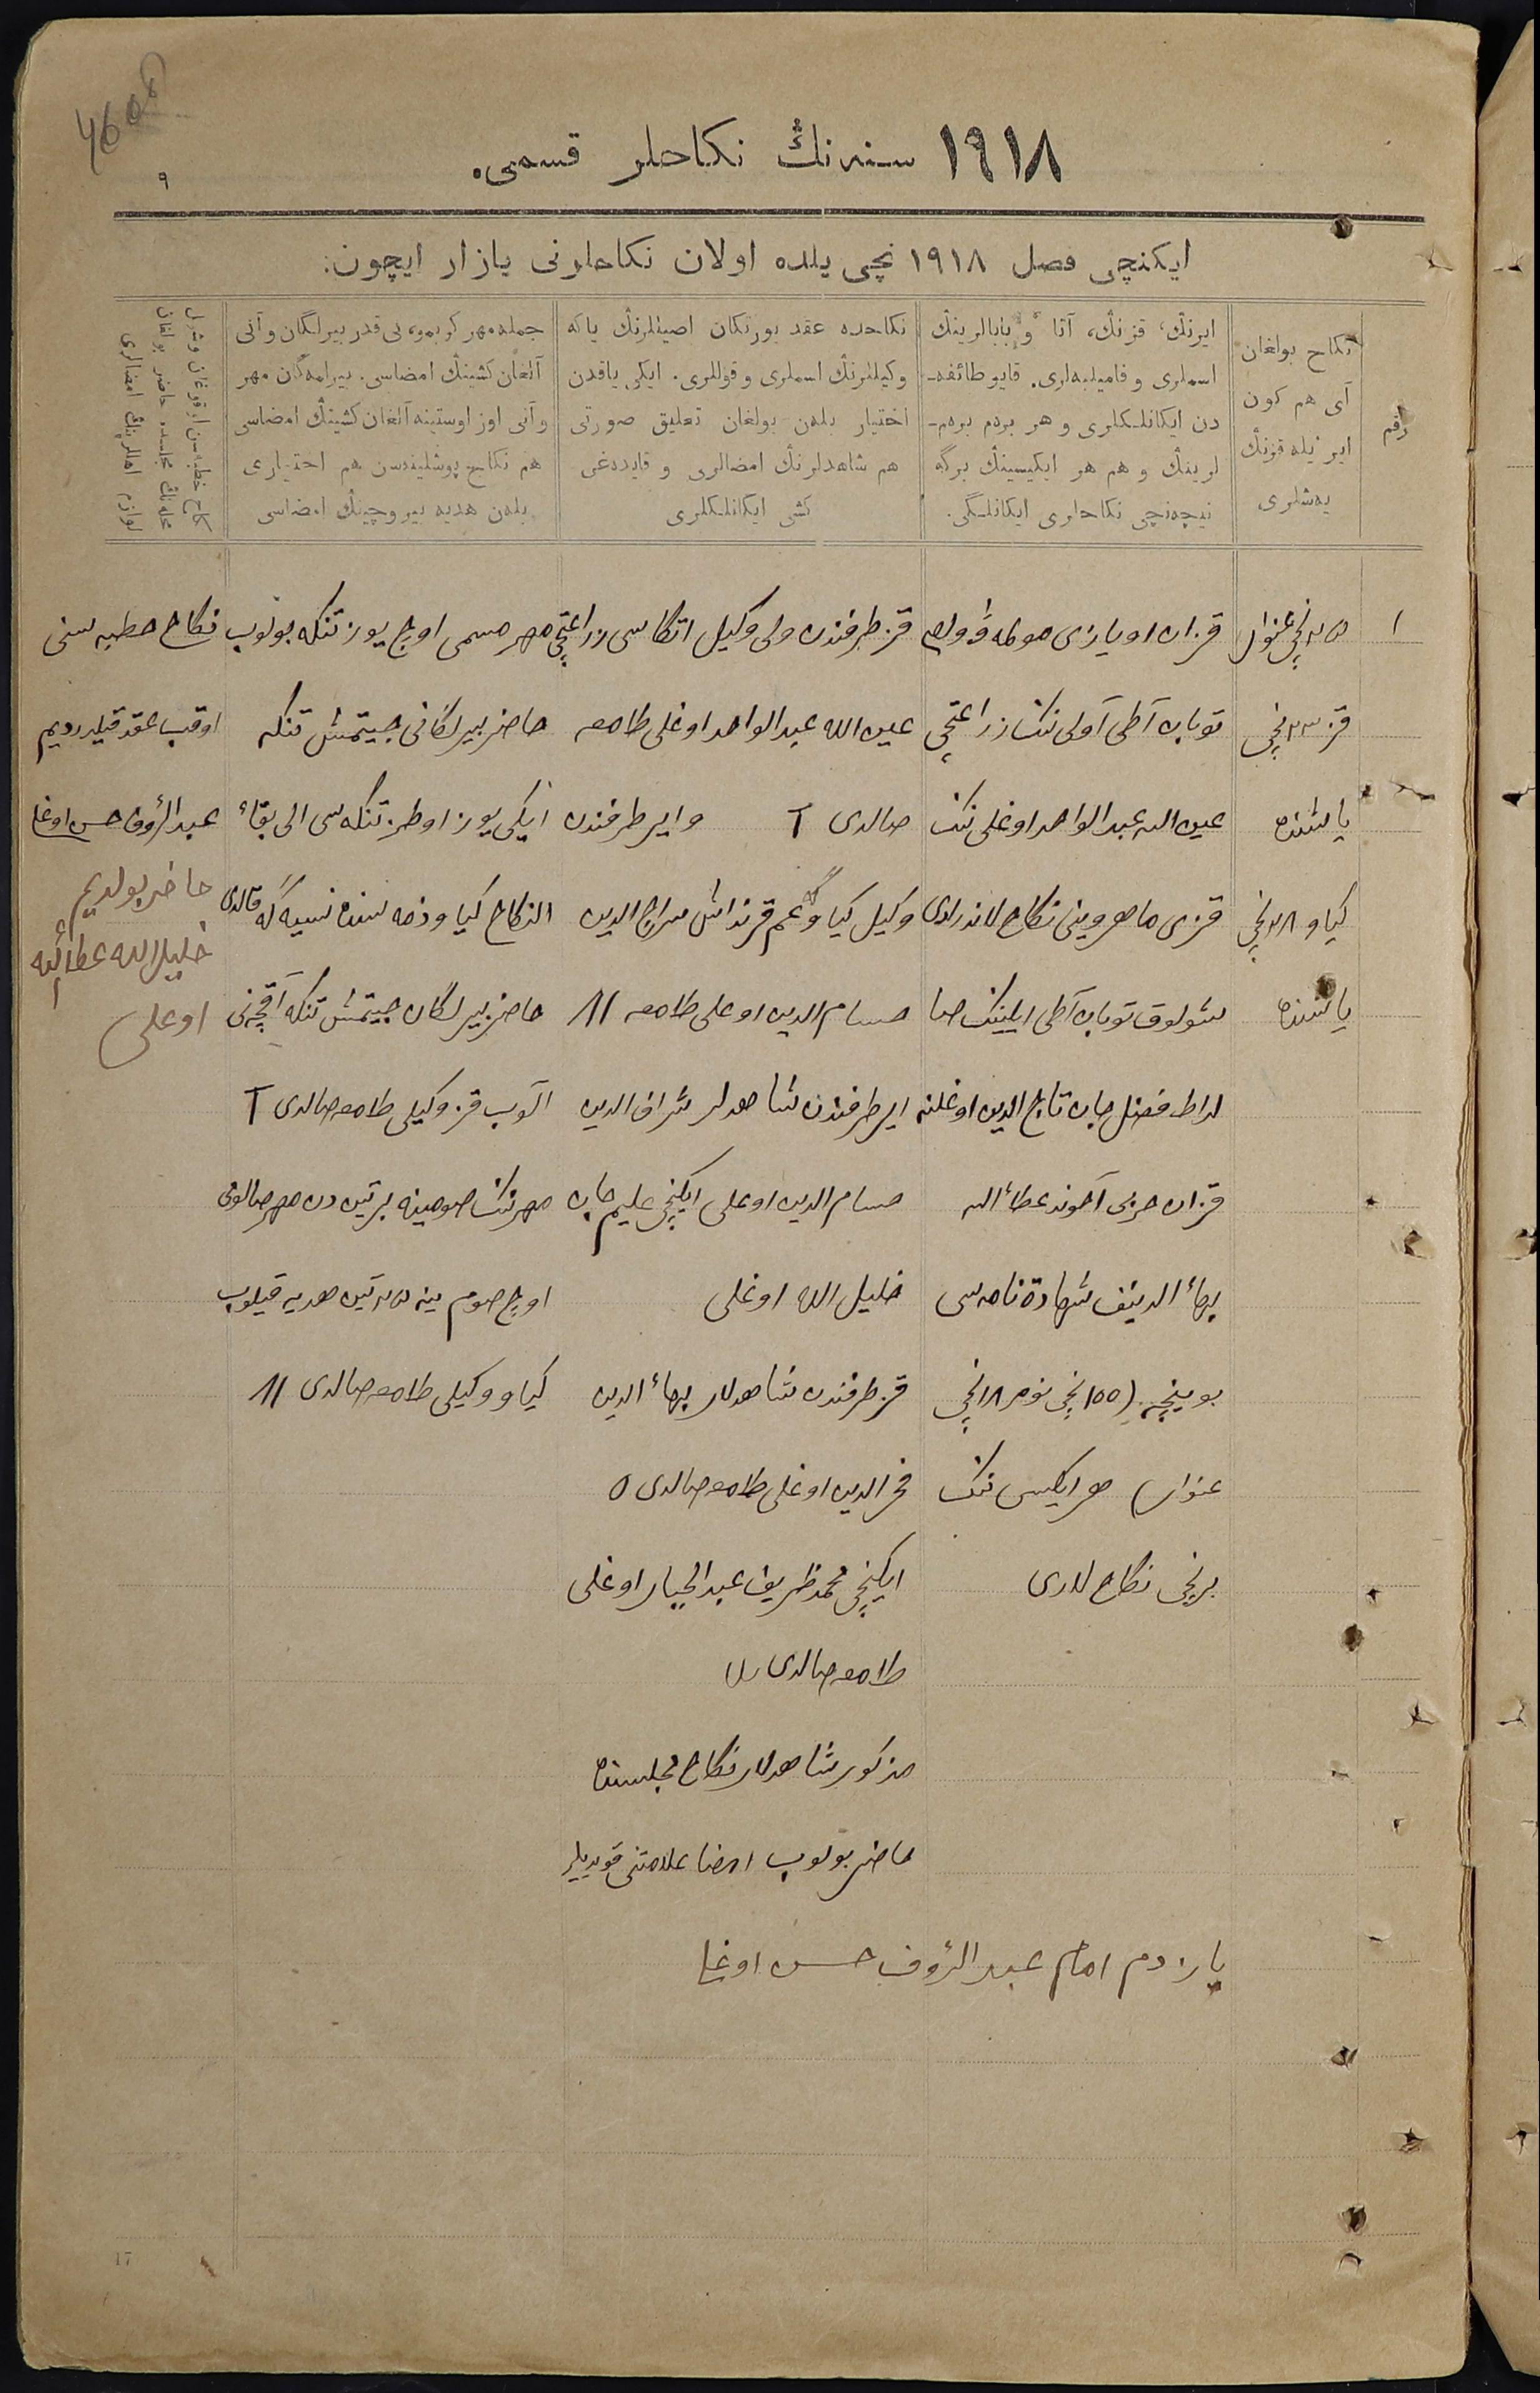 4608
٩
١٩١٨ سنه نڭ نكاحلر قسمی.
ایكنچی فصل ١٩١٨ نچی یلده اولان نكاحلرنی یازار ایچون:
رقم
نكاح بولغان
آی هم كون
ایر ئیله قزنڭ
یەشلری
ایرنڭ، قزنڭ، آتا و بابالرینڭ
اسملری و فامیلیەلری. قایو طائفه-
دن ایكانلكلری و هر برەم برەم-
لرینڭ و هم هر ایكیسینڭ برگه
نیچەنچی نكاحلری ایكانلگی.
نكاحده عقد یورتكان اصیللرنڭ یا كه
وكیللرنڭ اسملری و قوللری. ایكی یاقدن
اختیار بلەن بولغان تعلیق صورتی
هم شاهدلرنڭ امضالری و قایدەغی
كشی ایكانلكلری
جمله مهر كوبمو، نی قدر بیرلگان و آنی
آلغان كشینڭ امضاسی. بیرلمەگان مهر
و آنی اوز اوستینه آلغان كشینڭ امضاسی
هم نكاح پوشلینەسن هم اختیاری
بلەن هدیه بیروچینڭ امضاسی
نكاح خطبەسن اوقوغان و شول
محلەنڭ مجلسده حاضر بولغان
لوازم اهللرینڭ امضالری
١
٢٥ نچی غنوار
قز ٢٣ نچی
یاشنده
كیاو ٢٨ نچی
یاشنده
قزان اویازی
توبان آطی آولی ننك زراعتچی
عین الله عبدالواحد اوغلی ننك
قزی ماهروینی نكاح لاندرلدی
شولوق توبان آطی ایلینك
فضل جان تاج الدین اوغلنه
قزان حربی آخوند عطاء الله
بهاء الدینف شهادة نامه سی
بوینچه (١٥٥ نچی نومر ١٨ نچی
غنوار) هر ایكیسی ننك
برنچی نكاح لاری
قز طرفندن ولی وكیل اتكاسی زراعتچی
عین الله عبدالواحد اوغلی طامغه
صالدی T وایر طرفندن
وكیل كیاوگه عم قرنداش سراج الدین
حسام الدین اوغلی طامغه ١١
ایر طرفندن شاهدلر شراف الدین
حسام الدین اوغلی ایكنچی علیم جان
خلیل الله اوغلی
قز طرفندن شاهدلار بهاء الدین
فخر الدین اوغلی طامغه صالدی ٥
ایكنچی محمد ظریف عبد الجبار اوغلی
طامغه صالدی
مذكور شاهدلار نكاح مجلسنده
حاضر بولوب امضا علامتنی قویدیلر
مهر مسمی اوچ یوز تنكه بولوب
حاضر بیرلگانی جیتمش تنكه
ایكی یوز اوطز تنكه سی الی بقاء
النكاح كیاو ذمه سنده نسیه گه قالدی
حاضر بیرلگان جیتمش تنكه آقچه نی
آلوب قز وكیلی طامغه صالدی T
مهر ننك صومینه بر تین دن مهر صالونی
اوچ صوم ینه ٢٥ تین هدیه قیلوب
كیاو وكیلی طامغه صالدی ١١
نكاح خطبه سنی
اوقب عقد قیلدردیم
عبد الرؤف حسن اوغلی
حاضر بولدیم
خلیل الله عطاء الله
اوغلی
یازدم امام عبد الرؤف حسن اوغلی
17